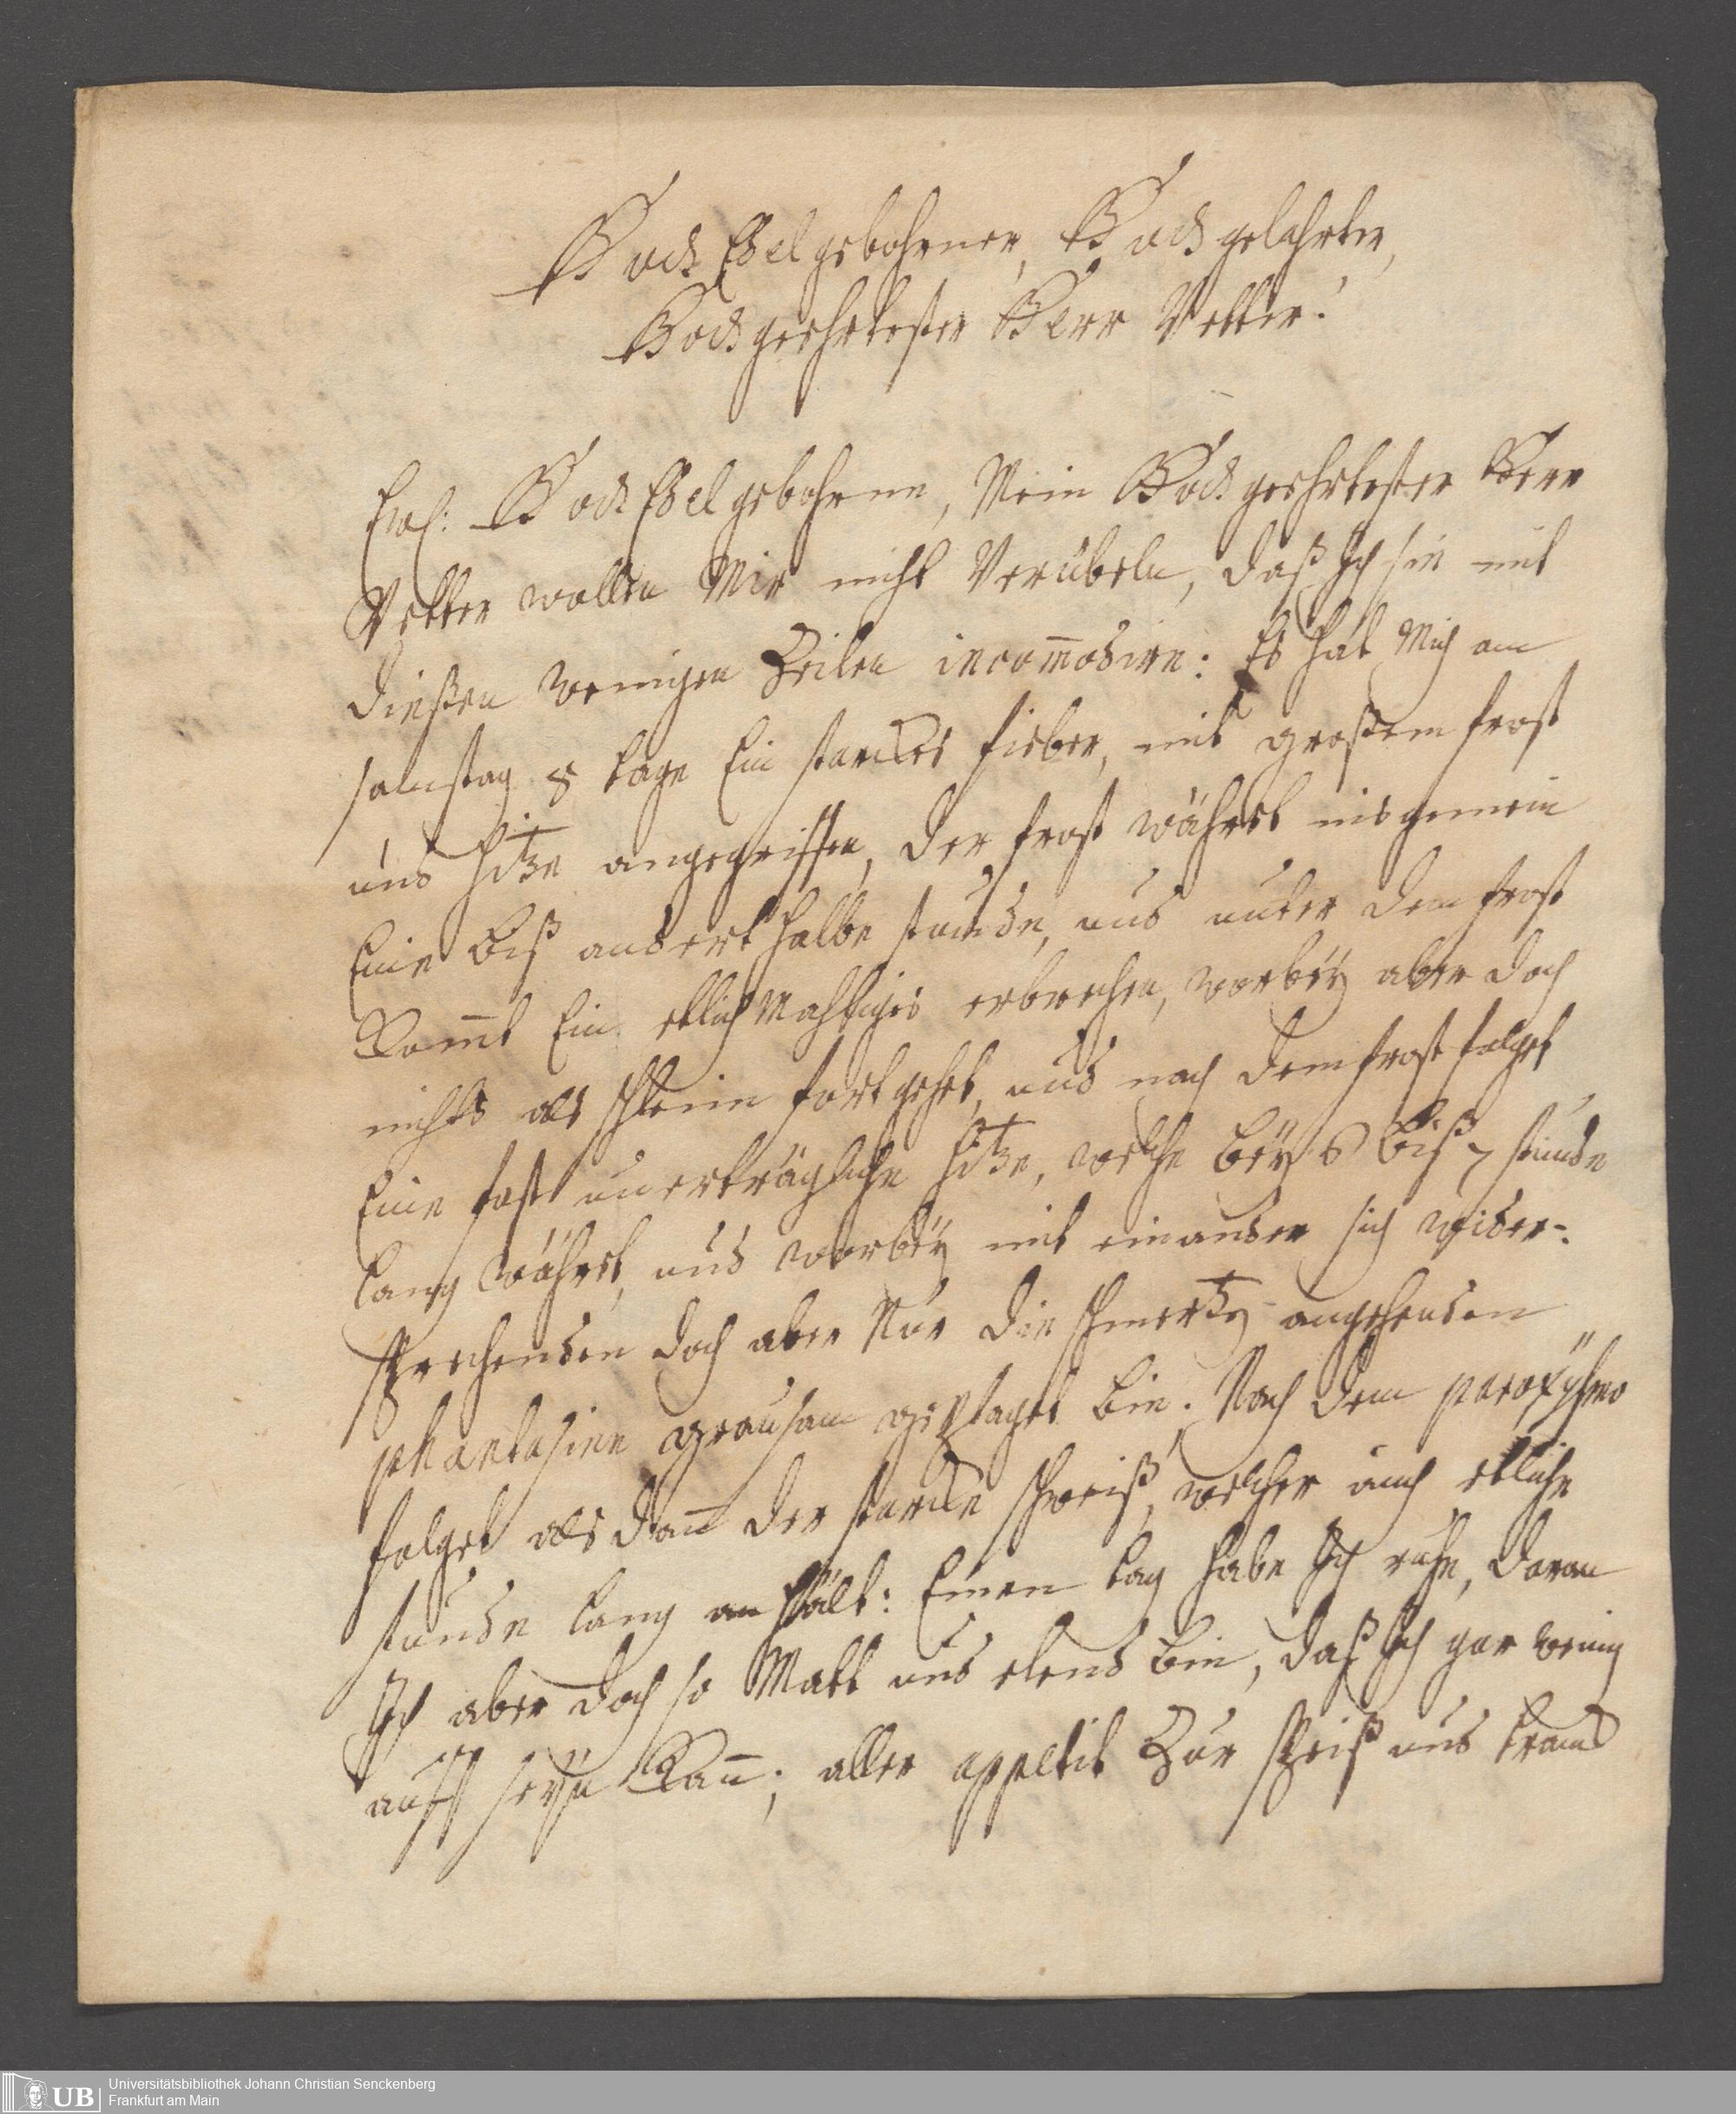 HochEdelgebohrner, Hochgelahrter,
Hochgeehrtester Herr Vetter!
Ew: HochEdelgebohrne, Mein Hochgeehrtester Herr
Vetter wollen Mir nicht Verübeln, daß Ich sie mit
dießen wenigen Zeilen incom̅odire: Es hat Mich am
samstag 8 tage Ein starckes fieber, mit großem frost
und hitze angegriffen, der frost währet insgemein
Eine biß andert halbe stunde, und unter dem frost
kom̅t Ein etlich Mahliges erbrechen, worbeÿ aber doch
nichts als schleim fortgehet, und nach dem frost folget
Eine fast unerträgliche hitze, welche beÿ 6 biß 7 stunde
lang währet, und worbeÿ mit einander sich wider-
sprechenden doch aber Nur die schmertz angehenden
phantasien grausam geplaget bin. Nach dem paroxÿsmo
folget als dan̅ der starcke schweiß, welcher auch etliche
stunde lang anhält: Einen tag habe Ich ruhe, daran
Ich aber doch so Matt und elend bin, daß Ich gar wenig
auff seÿn kan̅; aller appetit Zur speiß und tranck
Universitätsbibliothek Johann Christian Senckenberg
UB
Frankfurt am Main